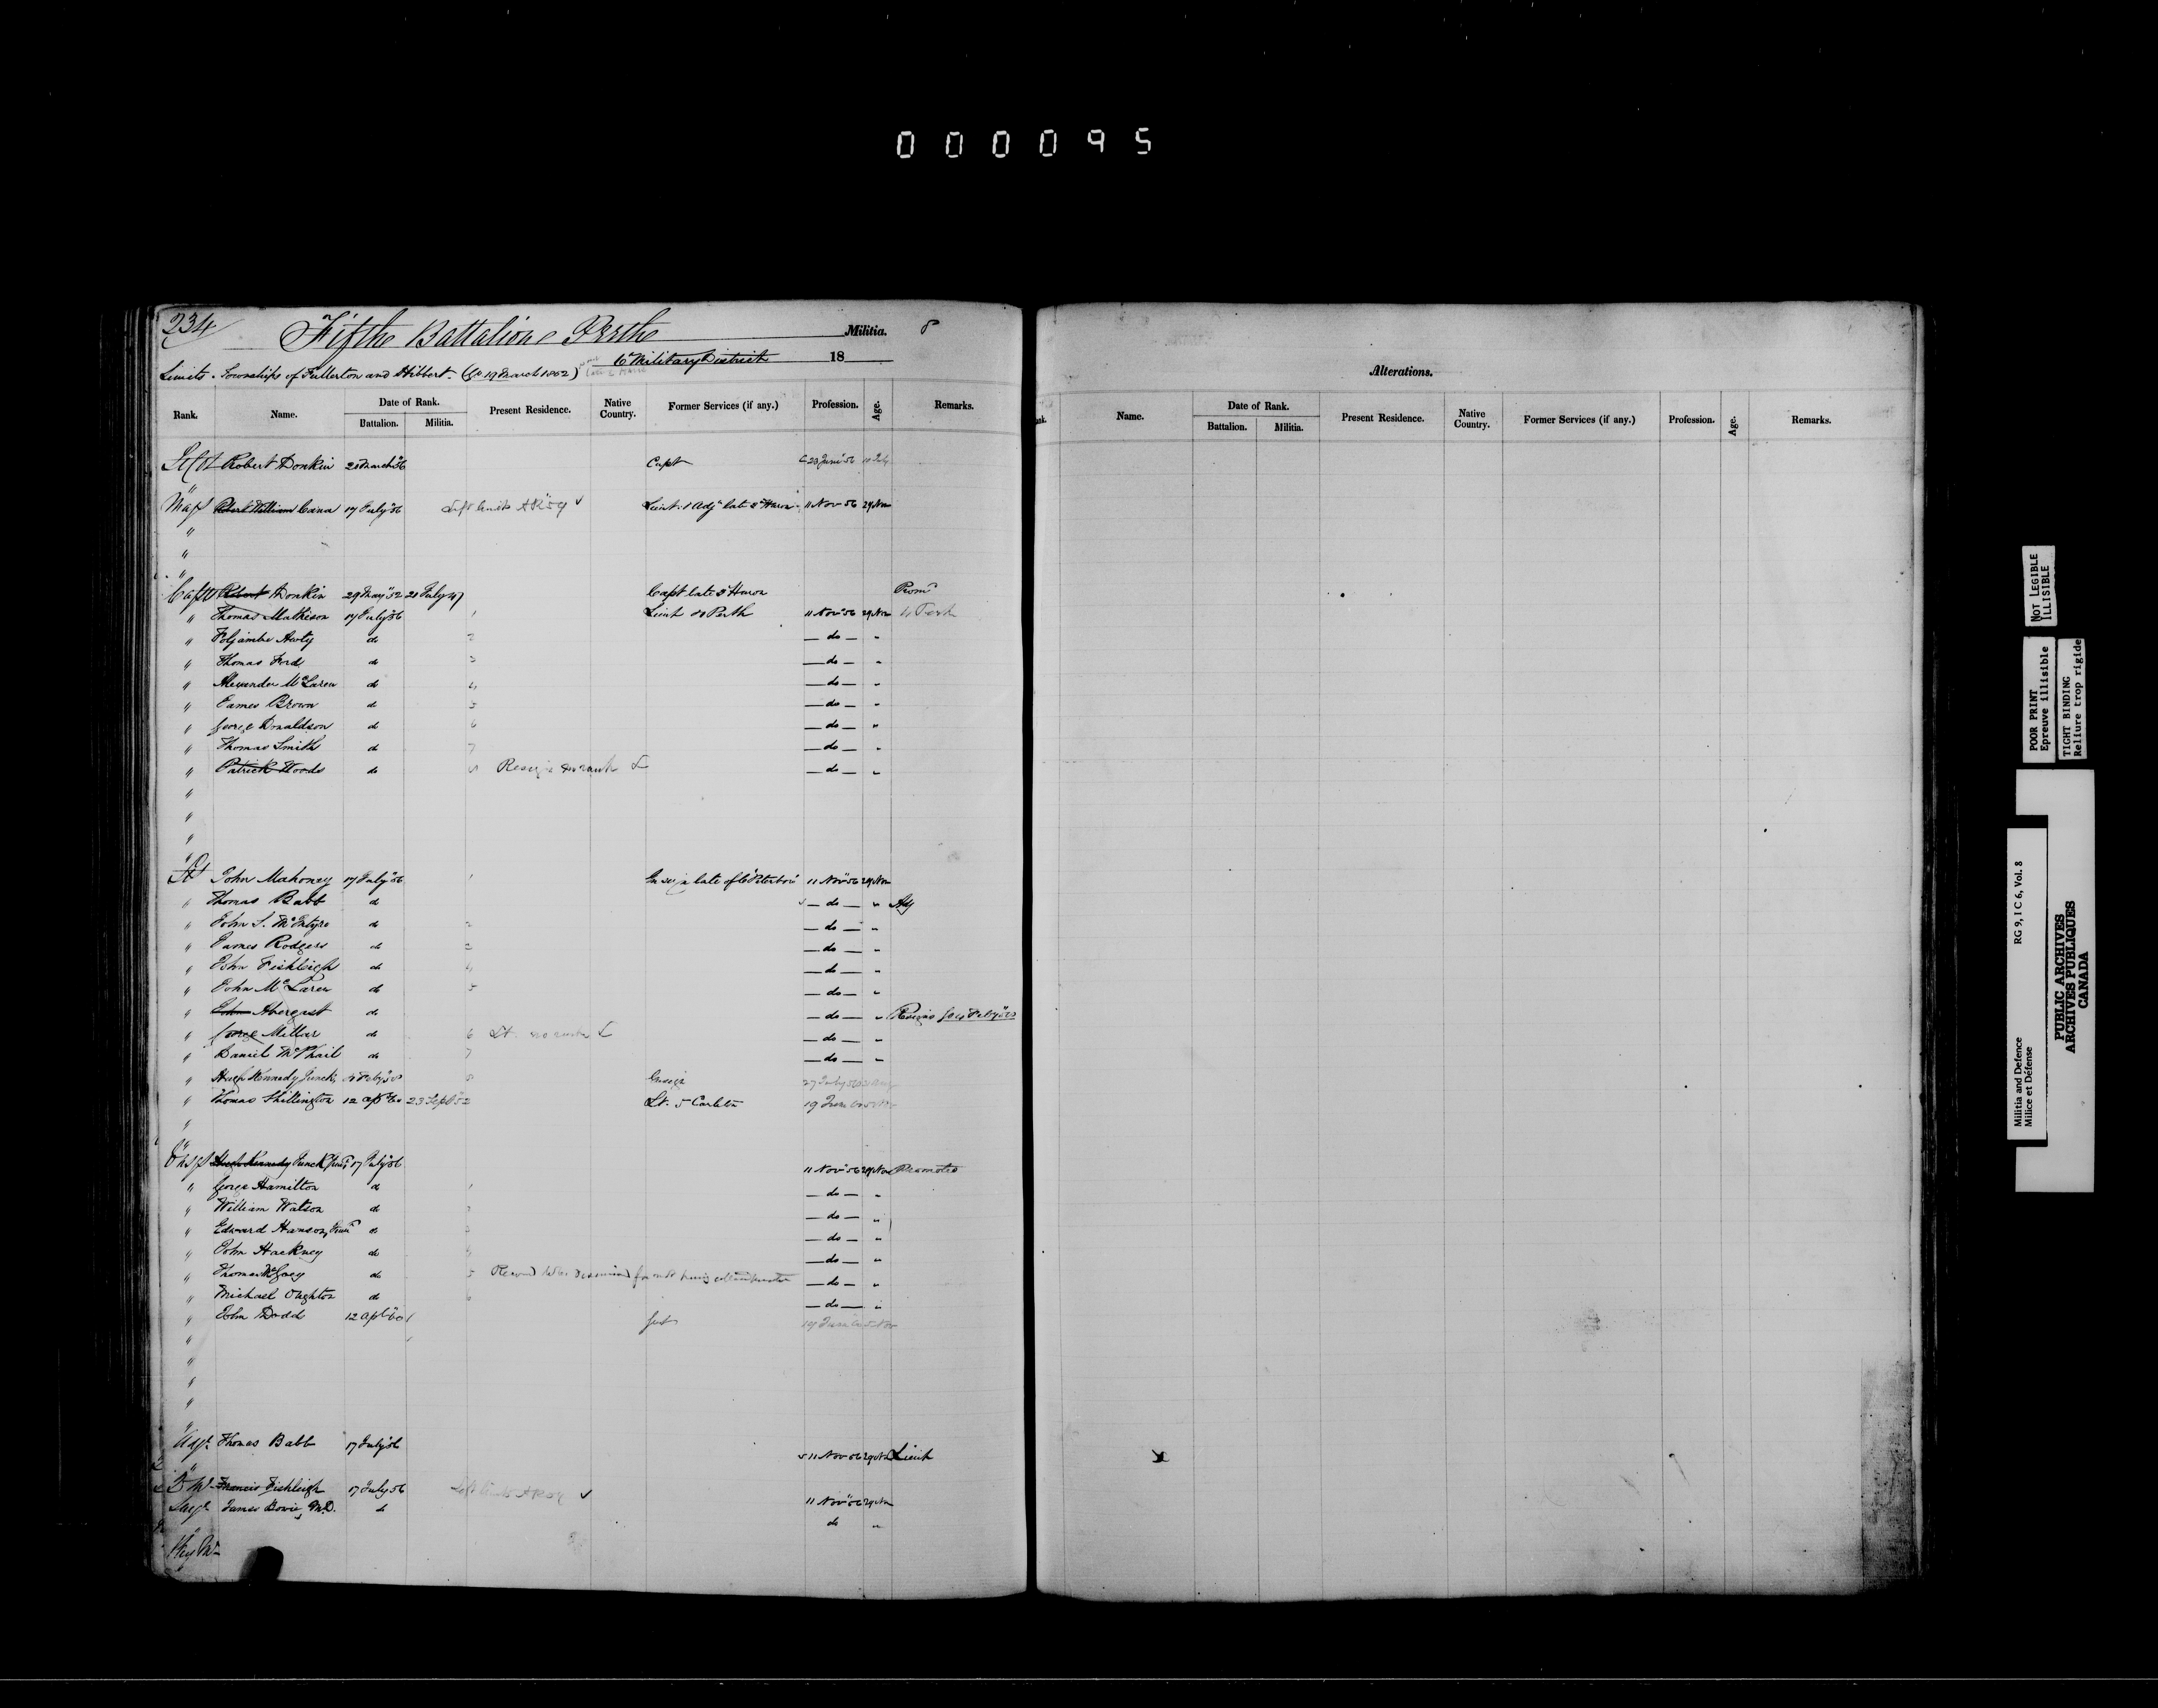 000095
234
Fifth Battalion Perth Militia. 8
10 Military District 18
Limits. Townships of Fullerton and Hibbert. (GO 19 March 1862)
Rank. Name. Date of Rank. Battalion. Militia. Present Residence. Native Country. Former Services (if any.) Profession. Age. Remarks.
Lt Col Robert Donkin 20 March 56 Capt 23 June 56
Maj Robert William Cana 17 July 56 Left limits Lieut. & Adjt late 3d Huron 11 Nov 56 29 Nov
"
"
"
Capt Robert Donkin 29 May 52 21 July 47 Capt late 3d Huron Prom
" Thomas Mathison 17 July 56 1 Lieut do Perth 11 Nov 56 29 Nov
" Foljambe Harty do 2 — do — "
" Thomas Ford do 3 — do — "
" Alexander McLaren do 4 — do — "
" James Brown do 5 — do — "
" George Donaldson do 6 — do — "
" Thomas Smith do 7 — do — "
" Patrick Woods do — do — "
"
"
"
"
Lt John Mahoney 17 July 56 1 Ensign late of 6 Peterboro 11 Nov 56 29 Nov
" Thomas Babb do — do — " Adj
" John S. McIntyre do 2 — do — "
" James Rodgers do 3 — do — "
" John Fishleigh do 4 — do — "
" John McLaren do 5 — do — "
" John Abergast do — do — " Resigns
" George Millar do 6 Lt. — do — "
" Daniel McPhail do 7 — do — "
" Hugh Kennedy Junck 8 Ensign 27 July
" Thomas Shillington 12 Apl 60 23 Sept 52 Lt. 5 Carleton 19 June
"
Ensign Hugh Kennedy Junck Junr 17 July 56 11 Nov 56 29 Nov Promoted
" George Hamilton do 1 — do — "
" William Watson do 2 — do — "
" Edward Hanson, Junr do 3 — do — "
" John Hackney do 4 — do — "
" Thomas McGoey do 5 — do — "
" Michael Oughton do 6 — do — "
" John Dodd 12 Apl 60 Gent
"
"
"
"
"
Adjt Thomas Babb 17 July 56 11 Nov 56 29 Nov Lieut
"
Q M Francis Fishleigh 17 July 56 Left limits 11 Nov 56 29 Nov
Surgn James Bowie, M.D. do do "
"
Alterations.
Name. Date of Rank. Battalion. Militia. Present Residence. Native Country. Former Services (if any.) Profession. Age. Remarks.
NOT LEGIBLE
ILLISIBLE
POOR PRINT
Epreuve illisible
TIGHT BINDING
Reliure trop rigide
Militia and Defence RG 9, I C 6, Vol. 8
Milice et Défense
PUBLIC ARCHIVES
ARCHIVES PUBLIQUES
CANADA